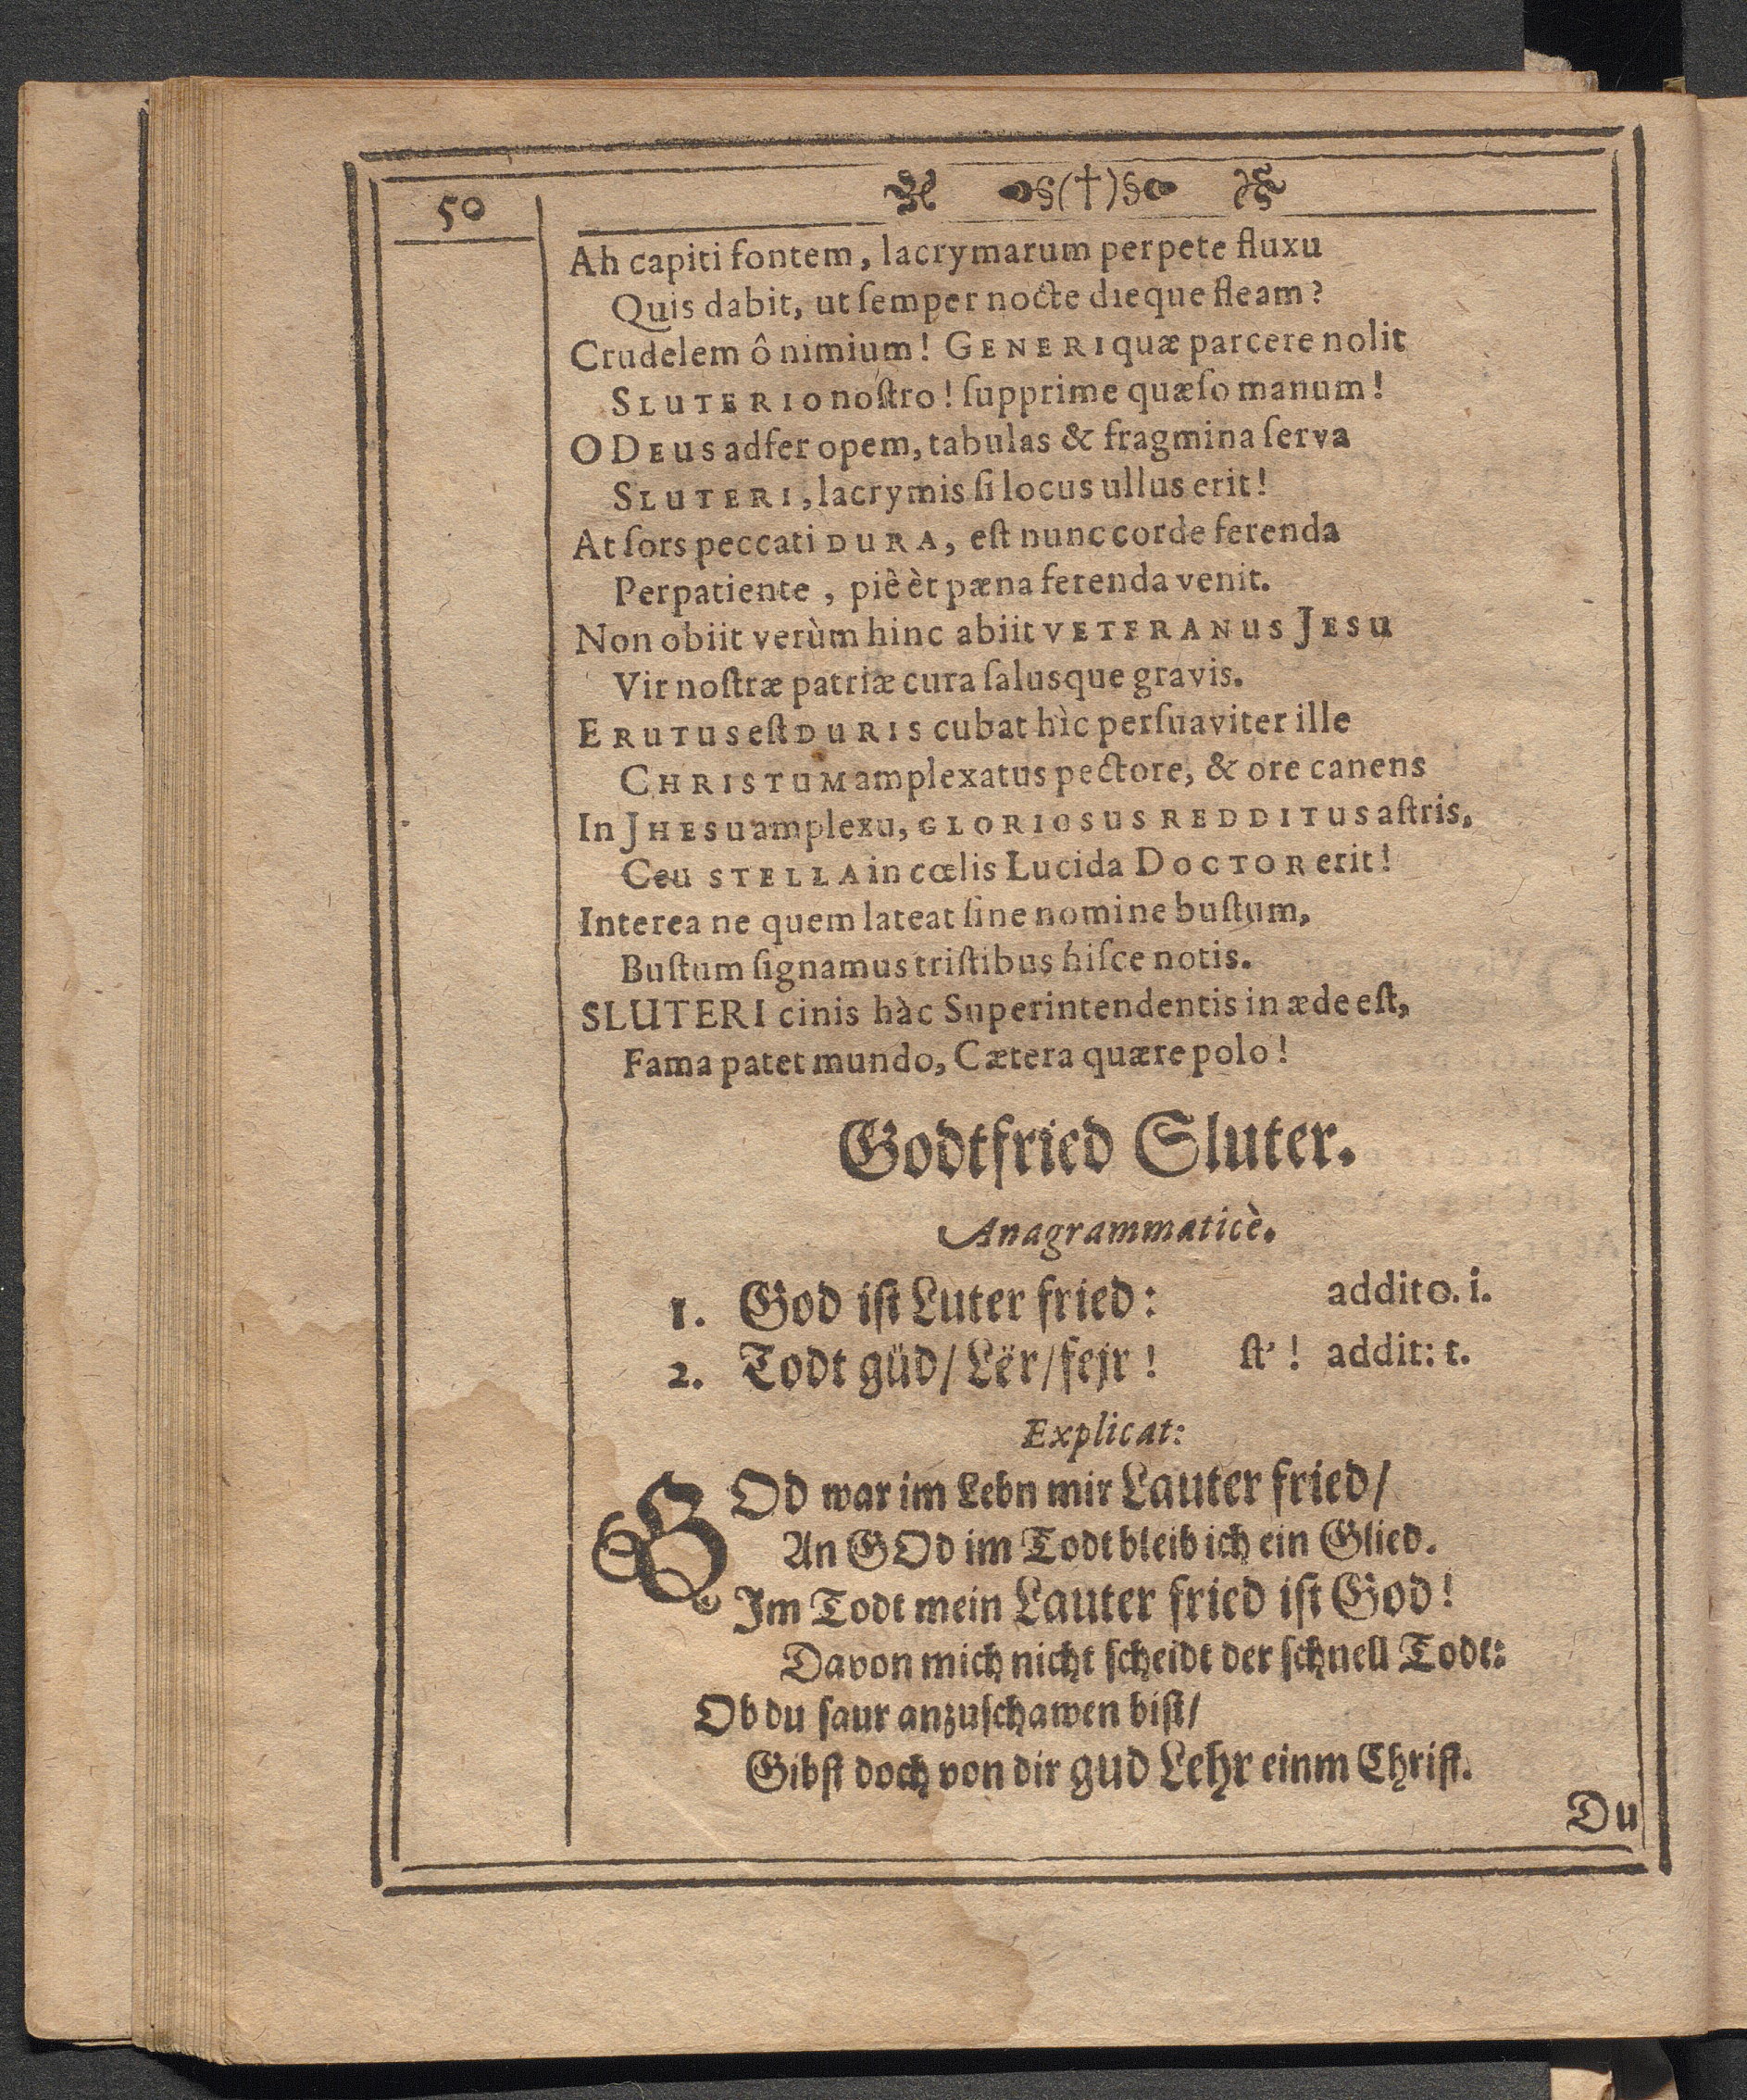 50
§(†)§
Ah capiti fontem, lacrymarum perpete fluxu
Quis dabit, ut ſemper nocte dieque fleam?
Crudelem ô nimium! GENERI quæ parcere nolit
SLUTERIO noſtro! ſupprime quæſo manum!
O DEUS adfer opem, tabulas & fragmina ſerva
SLUTERI, lacrymis ſi locus ullus erit!
At ſors peccati DURA, eſt nunc corde ferenda
Perpatiente, piè èt pæna ferenda venit.
Non obiit verùm hinc abiit VETERANUS JESU
Vir noſtræ patriæ cura ſalusque gravis.
ERUTUS eſt DURIS cubat hìc perſuaviter ille
CHRISTUM amplexatus pectore, & ore canens
In JHESU amplexu, GLORIOSUS REDDITUS aſtris,
Ceu STELLA in cœlis Lucida DOCTOR erit!
Interea ne quem lateat ſine nomine buſtum,
Buſtum ſignamus triſtibus hiſce notis.
SLUTERI cinis hàc Superintendentis in æde eſt,
Fama patet mundo, Cætera quære polo!
Godtfried Sluter.
Anagrammaticè.
1. God iſt Luter fried: addito. i.
2. Todt güd/ Lër/ fejr! ſt'! addit: t.
Explicat:
GOd war im Lebn mir Lauter fried/
An GOd im Todt bleib ich ein Glied.
Im Todt mein Lauter fried iſt God!
Davon mich nicht ſcheidt der ſchnell Todt:
Ob du ſaur anzuſchawen biſt/
Gibſt doch von dir gud Lehr einm Chriſt.
Du